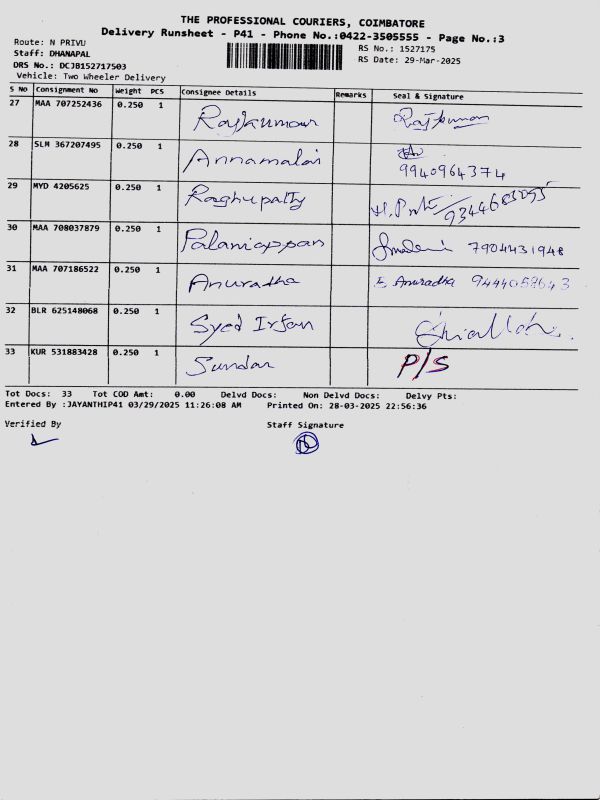 THE PROFESSIONAL COURIERS, COIMBATORE
Delivery Runsheet - P41 - Phone No.:0422-3505555 - Page No.:3
Route: N PRIVU RS No.: 1527175
Staff: DHANAPAL RS Date: 29-Mar-2025
DRS No.: DCJB152717503
Vehicle: Two Wheeler Delivery
S No Consignment No Weight PCS Consignee Details Remarks Seal & Signature
27 MAA 707252436 0.250 1 Rajkumar Rajkumar
28 SLM 367207495 0.250 1 Annamalai 9940964374
29 MYD 4205625 0.250 1 Raghupathy
30 MAA 708037879 0.250 1 Palaniappan 7904431948
31 MAA 707186522 0.250 1 Anuradha E. Anuradha 9444058643
32 BLR 625148068 0.250 1 Syed Irfan
33 KUR 531883428 0.250 1 Sundar P/S
Tot Docs: 33 Tot COD Amt: 0.00 Delvd Docs: Non Delvd Docs: Delvy Pts:
Entered By :JAYANTHIP41 03/29/2025 11:26:08 AM Printed On: 28-03-2025 22:56:36
Verified By Staff Signature